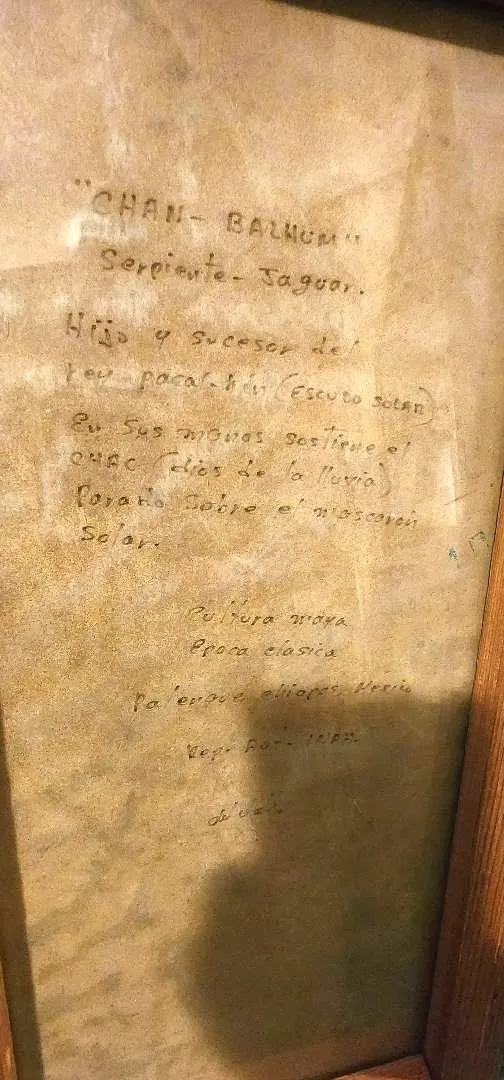 "CHAN- BALHUM"
Serpiente- Jaguar.
Hijo y sucesor del
rey pacal- (Escudo Solar)
En Sus manos sostiene el
CHAC (dios de la lluvia)
Parado Sobre el mascarón
Solar.
Cultura maya
Epoca clásica
Palenque chiapas, México
INAH.